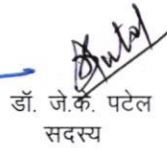 डॉ. जे.के. पटेल
सदस्य